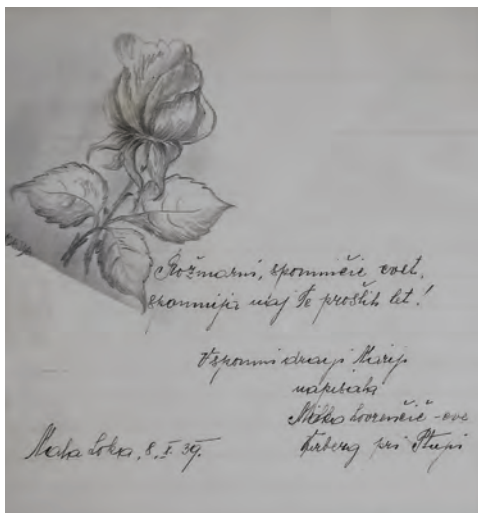 Rožmarni, spominčic cvet,
spominja naj Te prošlih let!
V spomin dragi Mariji
napisala
Milka Lovrenčič-eva
pri
Mala Loka, 8. I. 39.